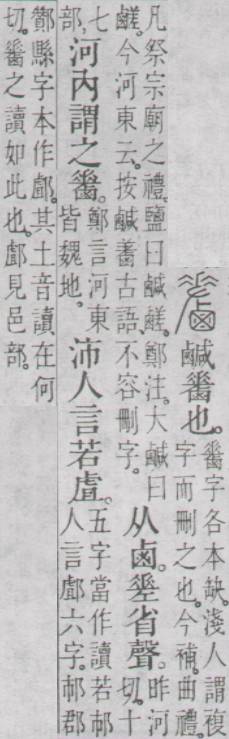 鹹𪉹也。𪉹字各本缺。淺人謂複
字而刪之也。今補。曲禮。
凡祭宗廟之禮。鹽曰鹹鹺。鄭注。大鹹曰
鹺。今河東云。按鹹𪉹古語。不容刪字。从鹵。𢀩省聲。昨河
切。十
七
部。河內謂之𪉹。鄭言河東
皆魏地。沛人言若虘。五字當作讀若
人言䣜六字。郡
酇縣字本作䣜。其土音讀在何
切。𪉹之讀如此也。䣜見邑部。